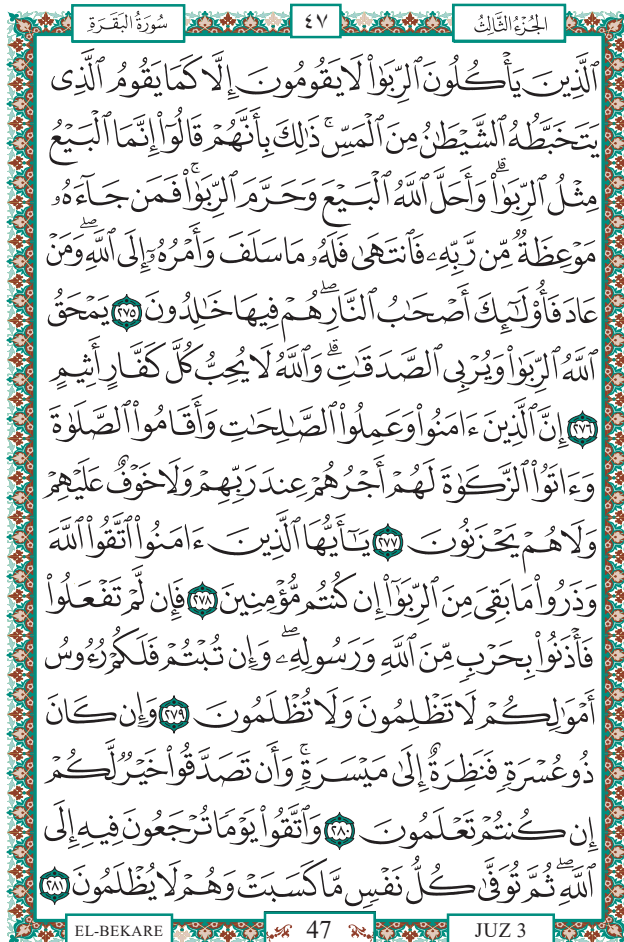 سُورَةُ البَقَرَةِ ٤٧ الجُزْءُ الثَّالِثُ
ٱلَّذِينَ يَأْكُلُونَ ٱلرِّبَوٰا۟ لَا يَقُومُونَ إِلَّا كَمَا يَقُومُ ٱلَّذِى
يَتَخَبَّطُهُ ٱلشَّيْطَٰنُ مِنَ ٱلْمَسِّ ۚ ذَٰلِكَ بِأَنَّهُمْ قَالُوٓا۟ إِنَّمَا ٱلْبَيْعُ
مِثْلُ ٱلرِّبَوٰا۟ ۗ وَأَحَلَّ ٱللَّهُ ٱلْبَيْعَ وَحَرَّمَ ٱلرِّبَوٰا۟ ۚ فَمَن جَآءَهُۥ
مَوْعِظَةٌ مِّن رَّبِّهِۦ فَٱنتَهَىٰ فَلَهُۥ مَا سَلَفَ وَأَمْرُهُۥٓ إِلَى ٱللَّهِ ۖ وَمَنْ
عَادَ فَأُو۟لَٰٓئِكَ أَصْحَٰبُ ٱلنَّارِ ۖ هُمْ فِيهَا خَٰلِدُونَ ٢٧٥ يَمْحَقُ
ٱللَّهُ ٱلرِّبَوٰا۟ وَيُرْبِى ٱلصَّدَقَٰتِ ۗ وَٱللَّهُ لَا يُحِبُّ كُلَّ كَفَّارٍ أَثِيمٍ
٢٧٦ إِنَّ ٱلَّذِينَ ءَامَنُوا۟ وَعَمِلُوا۟ ٱلصَّٰلِحَٰتِ وَأَقَامُوا۟ ٱلصَّلَوٰةَ
وَءَاتَوُا۟ ٱلزَّكَوٰةَ لَهُمْ أَجْرُهُمْ عِندَ رَبِّهِمْ وَلَا خَوْفٌ عَلَيْهِمْ
وَلَا هُمْ يَحْزَنُونَ ٢٧٧ يَٰٓأَيُّهَا ٱلَّذِينَ ءَامَنُوا۟ ٱتَّقُوا۟ ٱللَّهَ
وَذَرُوا۟ مَا بَقِىَ مِنَ ٱلرِّبَوٰٓا۟ إِن كُنتُم مُّؤْمِنِينَ ٢٧٨ فَإِن لَّمْ تَفْعَلُوا۟
فَأْذَنُوا۟ بِحَرْبٍ مِّنَ ٱللَّهِ وَرَسُولِهِۦ ۖ وَإِن تُبْتُمْ فَلَكُمْ رُءُوسُ
أَمْوَٰلِكُمْ لَا تَظْلِمُونَ وَلَا تُظْلَمُونَ ٢٧٩ وَإِن كَانَ
ذُو عُسْرَةٍ فَنَظِرَةٌ إِلَىٰ مَيْسَرَةٍ ۚ وَأَن تَصَدَّقُوا۟ خَيْرٌ لَّكُمْ
إِن كُنتُمْ تَعْلَمُونَ ٢٨٠ وَٱتَّقُوا۟ يَوْمًا تُرْجَعُونَ فِيهِ إِلَى
ٱللَّهِ ۖ ثُمَّ تُوَفَّىٰ كُلُّ نَفْسٍ مَّا كَسَبَتْ وَهُمْ لَا يُظْلَمُونَ ٢٨١
EL-BEKARE 47 JUZ 3